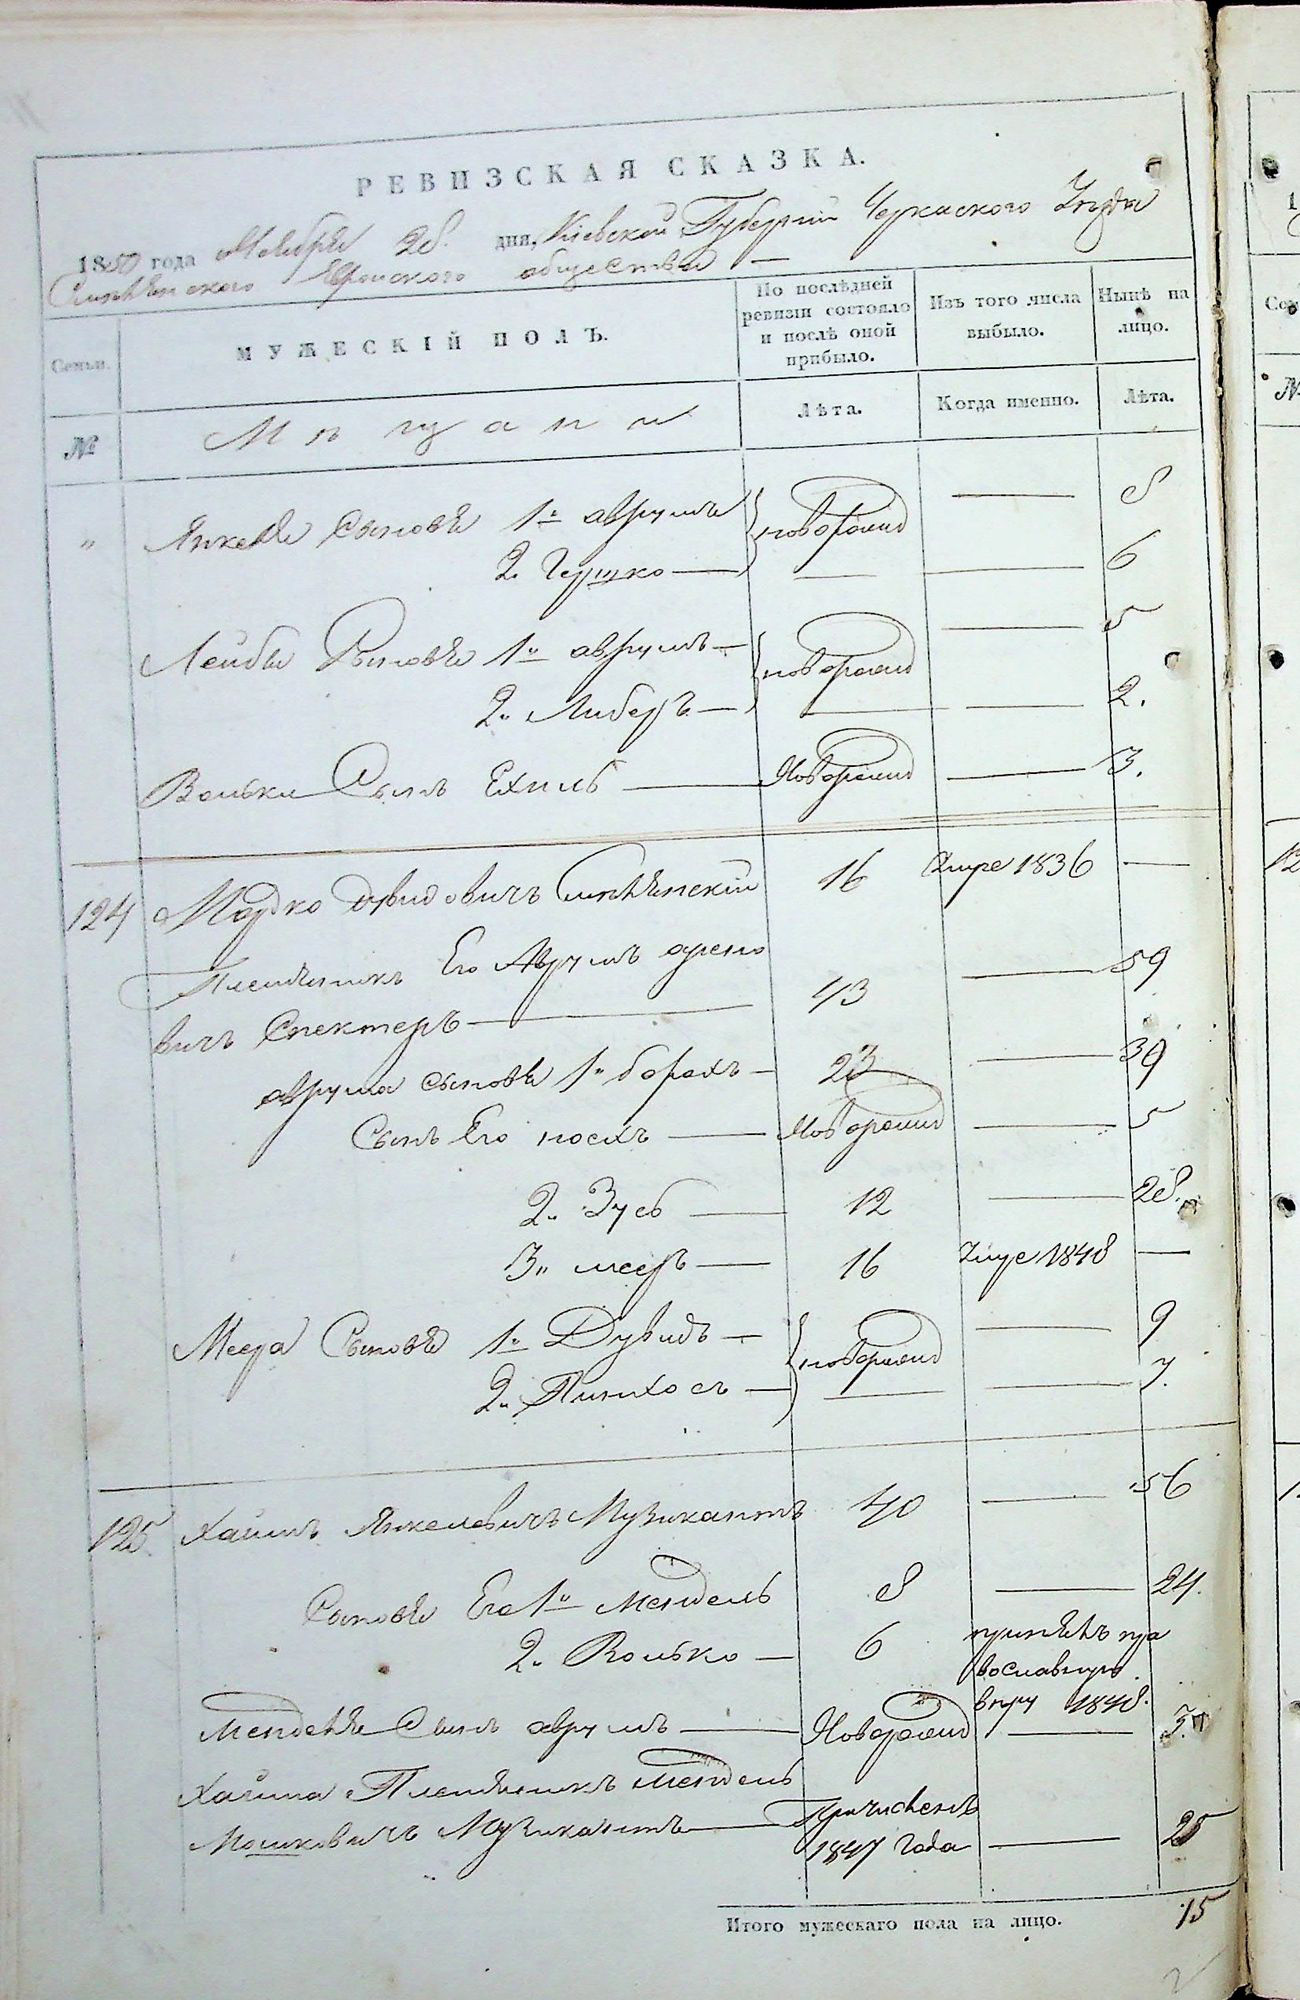 РЕВИЗСКАЯ СКАЗКА.
1850 года Ноября 28. дня, Кіевской Губерніи Черкаского Уезда
Смѣлянского Еврейского общества —
Семьи. МУЖЕСКІЙ ПОЛЪ. По послѣдней ревизіи состояло и послѣ оной прибыло. Изъ того числа выбыло. Нынѣ на лицо.
№ Мѣщани Лѣта. Когда именно. Лѣта.
„ Янкеля Сыновья 1й аврумъ новорожд — 8
2й Гершко — — — 6
Лейбы Сыновья 1й аврумъ — новорожд — 5
2й Либеръ — — — 2.
Волька Сынъ Ехиль — Новорожд — 3.
124 Мордко Дувидовичъ Смѣлянскій 16 Умре 1836 —
Племянникъ Его Аврумъ
вичъ Спектеръ — 43 — 59
аврума сыновья 1й борахъ — 23 — 39
Сынъ Его — Новорожд — 5
2й Зусь — 12 — 28.
3й меер — 16 Умре 1848 —
Меера Сыновья 1й Дувидъ — новорожд — 9
2й Пинхосъ — — — 7.
125 Хаимъ Янкелевичъ Музикантъ 40 — 56
Сыновья Его 1й мендель 8 — 24.
2й Волько — 6 принялъ пра
вославную
вѣру 1848.
Менделя Сынъ аврумъ — Новорожд — 3.
Хаима Племянникъ мендель
Мошковичъ Музикантъ — Причисленъ
1847 года — 25
Итого мужескаго пола на лицо. 15